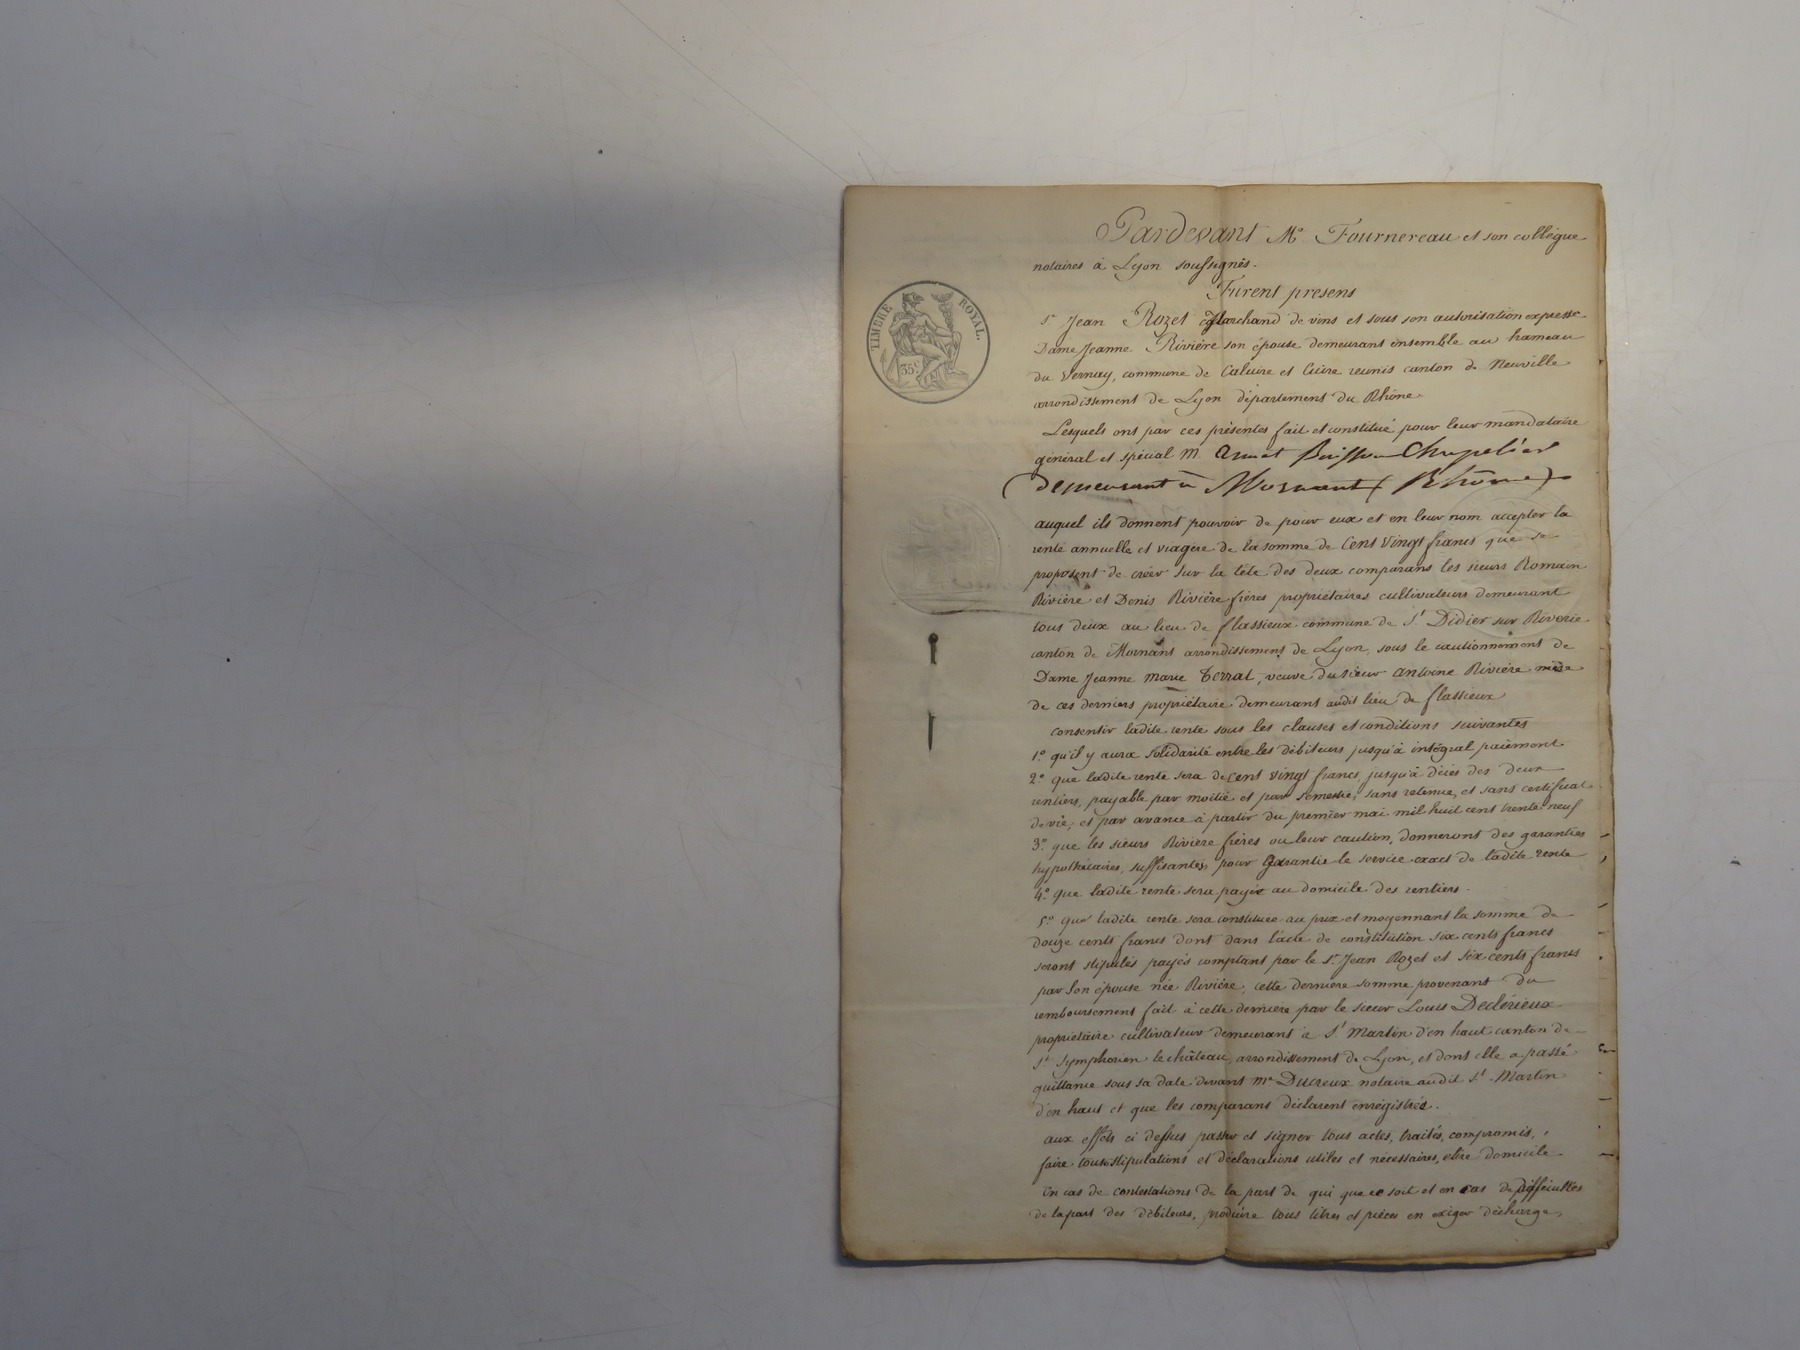 Pardevant Me Fournereau et son collègue
notaires à Lyon soussignés.
Furent presens
TIMBRE ROYAL.
35c
Sr Jean Rozet Marchand de vins et sous son autorisation expresse
Dame Jeanne Rivière son épouse demeurant ensemble au hameau
du Vernay, commune de Caluire et Cuire reunis canton de Neuville
arrondissement de Lyon département du Rhône
Lesquels ont par ces présentes fait et constitué pour leur mandataire
général et spécial M. Chapelier
demeurant à Mornant (Rhône)
auquel ils donnent pouvoir de pour eux et en leur nom accepter la
rente annuelle et viagère de la somme de Cent Vingt francs que se
proposent de créer sur la tête des deux comparans les sieurs Romain
Rivière et Denis Rivière frères propriétaires cultivateurs demeurant
tous deux au lieu de flassieux commune de St Didier sur Riverie
canton de Mornant arrondissement de Lyon, sous le cautionnement de
Dame Jeanne Marie Terrat, veuve du sieur Antoine Rivière mère
de ces derniers propriétaire demeurant audit lieu de flassieux
consentir ladite rente sous les clauses et conditions suivantes
1o. qu'il y aura solidarité entre les débiteurs jusqu'à intégral paiement
2o. que ladite rente sera de Cent vingt francs, jusqu'à décès des deux
rentiers, payable par moitié et par semestre, sans retenue, et sans certificat
de vie, et par avance à partir du premier mai mil huit cent trente neuf
3o. que les sieurs Rivière frères ou leur caution, donneront des garanties
hypothécaires, suffisantes pour garantie le service exact de ladite rente
4o. que ladite rente sera payée au domicile des rentiers.
5o. que ladite rente sera constituée au prix et moyennant la somme de
douze cents francs dont dans l'acte de constitution six cents francs
seront stipulés payés comptant par le Sr Jean Rozet et six cents francs
par son épouse née Rivière, cette dernière somme provenant du
remboursement fait à cette dernière par le sieur Louis Declérieux
propriétaire cultivateur demeurant à St Martin d'en haut canton de
St Symphorien le château, arrondissement de Lyon, et dont elle a passé
quittance sous sa date devant Me Ducreux notaire audit St Martin
d'en haut et que les comparans déclarent enregistrée.
aux effets ci dessus passer et signer tous actes, traités, compromis,
faire tous stipulations et déclarations utiles et nécessaires, elire domicile
En cas de contestations de la part de qui que ce soit et en cas de difficultés
de la part des débiteurs, produire tous titres et pièces en exiger décharge,